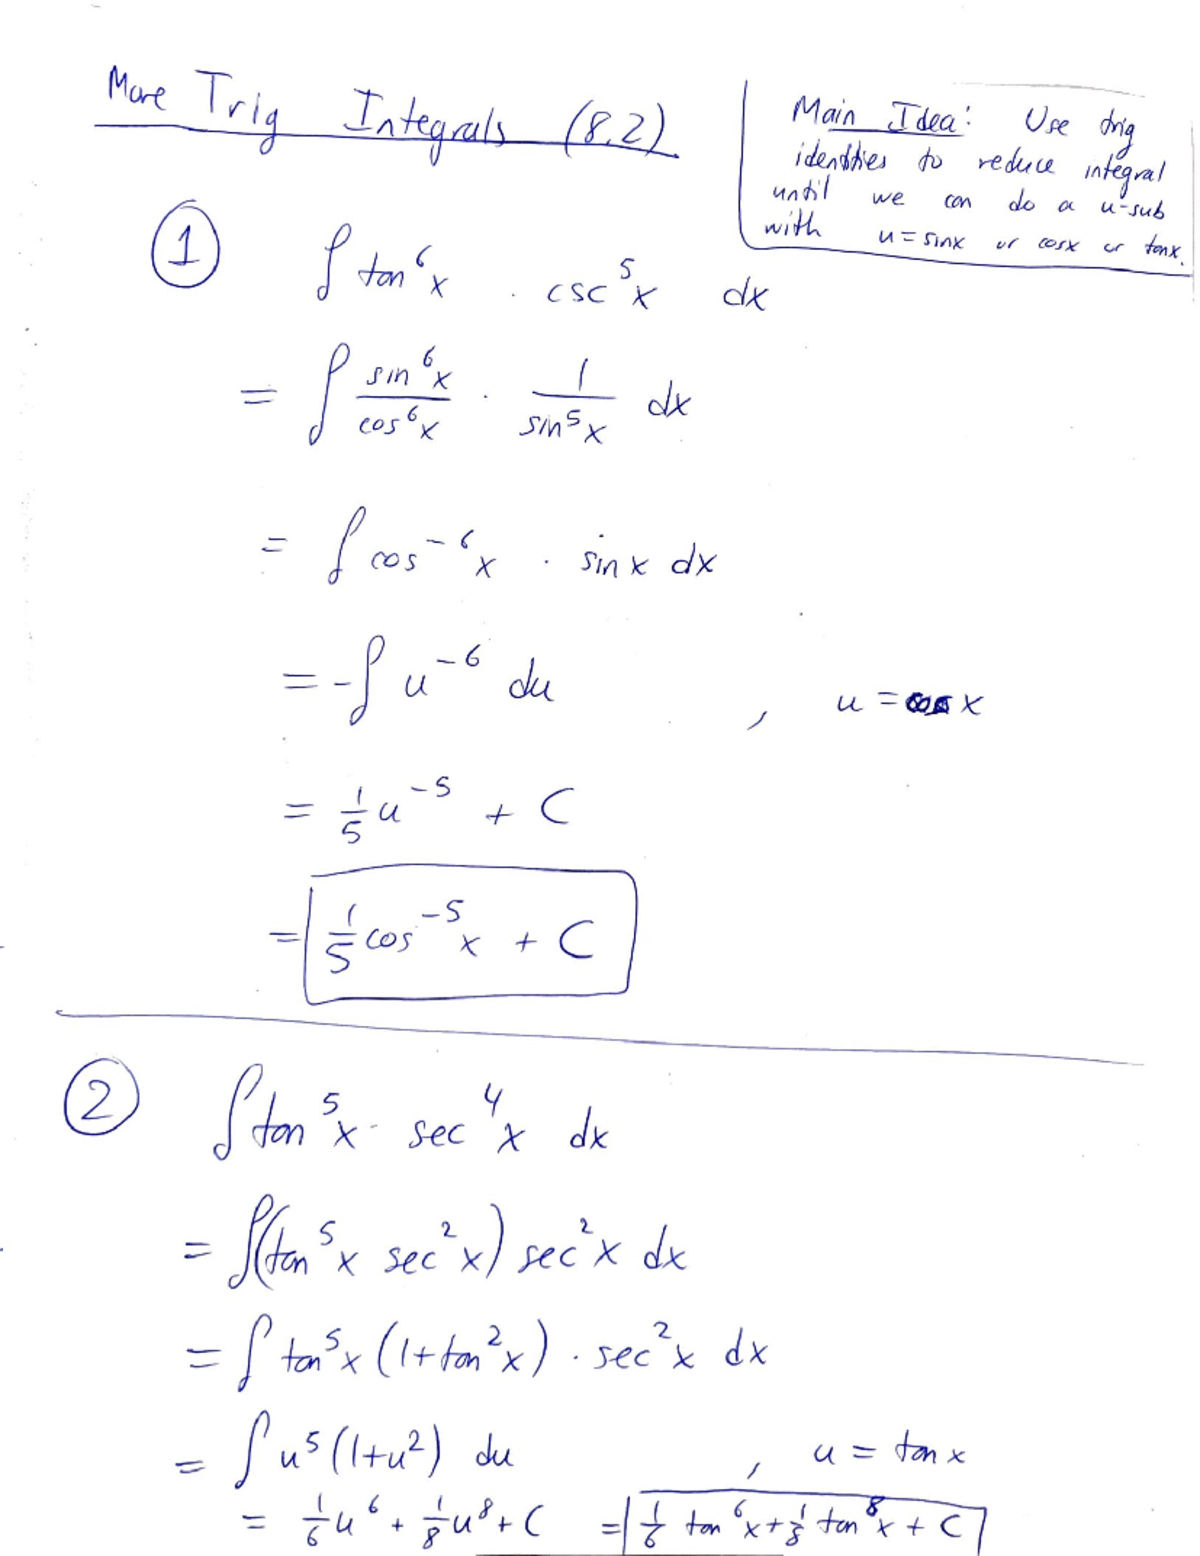 More Trig Integrals (8.2)
Main Idea: Use trig
identities to reduce integral
until we can do a u-sub
with u = sinx or cosx or tanx.
① ∫ tan⁶x · csc⁵x dx
= ∫ sin⁶x/cos⁶x · 1/sin⁵x dx
= ∫ cos⁻⁶x · sinx dx
= -∫ u⁻⁶ du , u = cosx
= 1/5 u⁻⁵ + C
= 1/5 cos⁻⁵x + C
② ∫ tan⁵x · sec⁴x dx
= ∫(tan⁵x sec²x) sec²x dx
= ∫ tan⁵x (1+tan²x) · sec²x dx
= ∫ u⁵ (1+u²) du , u = tanx
= 1/6 u⁶ + 1/8 u⁸ + C = 1/6 tan⁶x + 1/8 tan⁸x + C